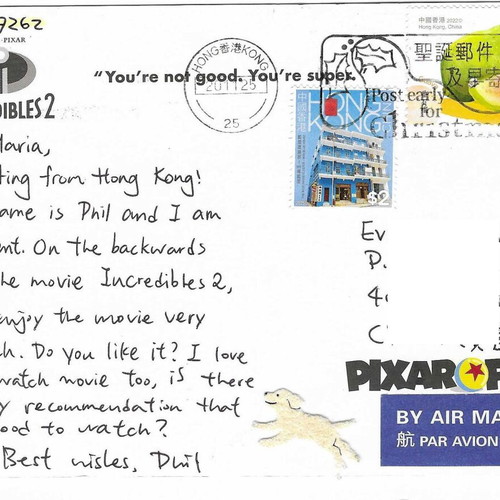 9262
PIXAR
DIBLES 2
"You're not good. You're super.
HONG 香港 KONG
20.11.25
25
中國香港 2022
Hong Kong, China
聖誕郵件
及早寄
Post early
for
中國香港
HONG KONG
$2
Maria,
ting from Hong Kong!
ame is Phil and I am
nt. On the backwards
he movie Incredibles 2,
njoy the movie very
ch. Do you like it? I love
watch movie too, is there
y recommendation that
ood to watch?
Best wishes, Phil
Ev
P.
4
C
PIXAR
BY AIR MA
航 PAR AVION